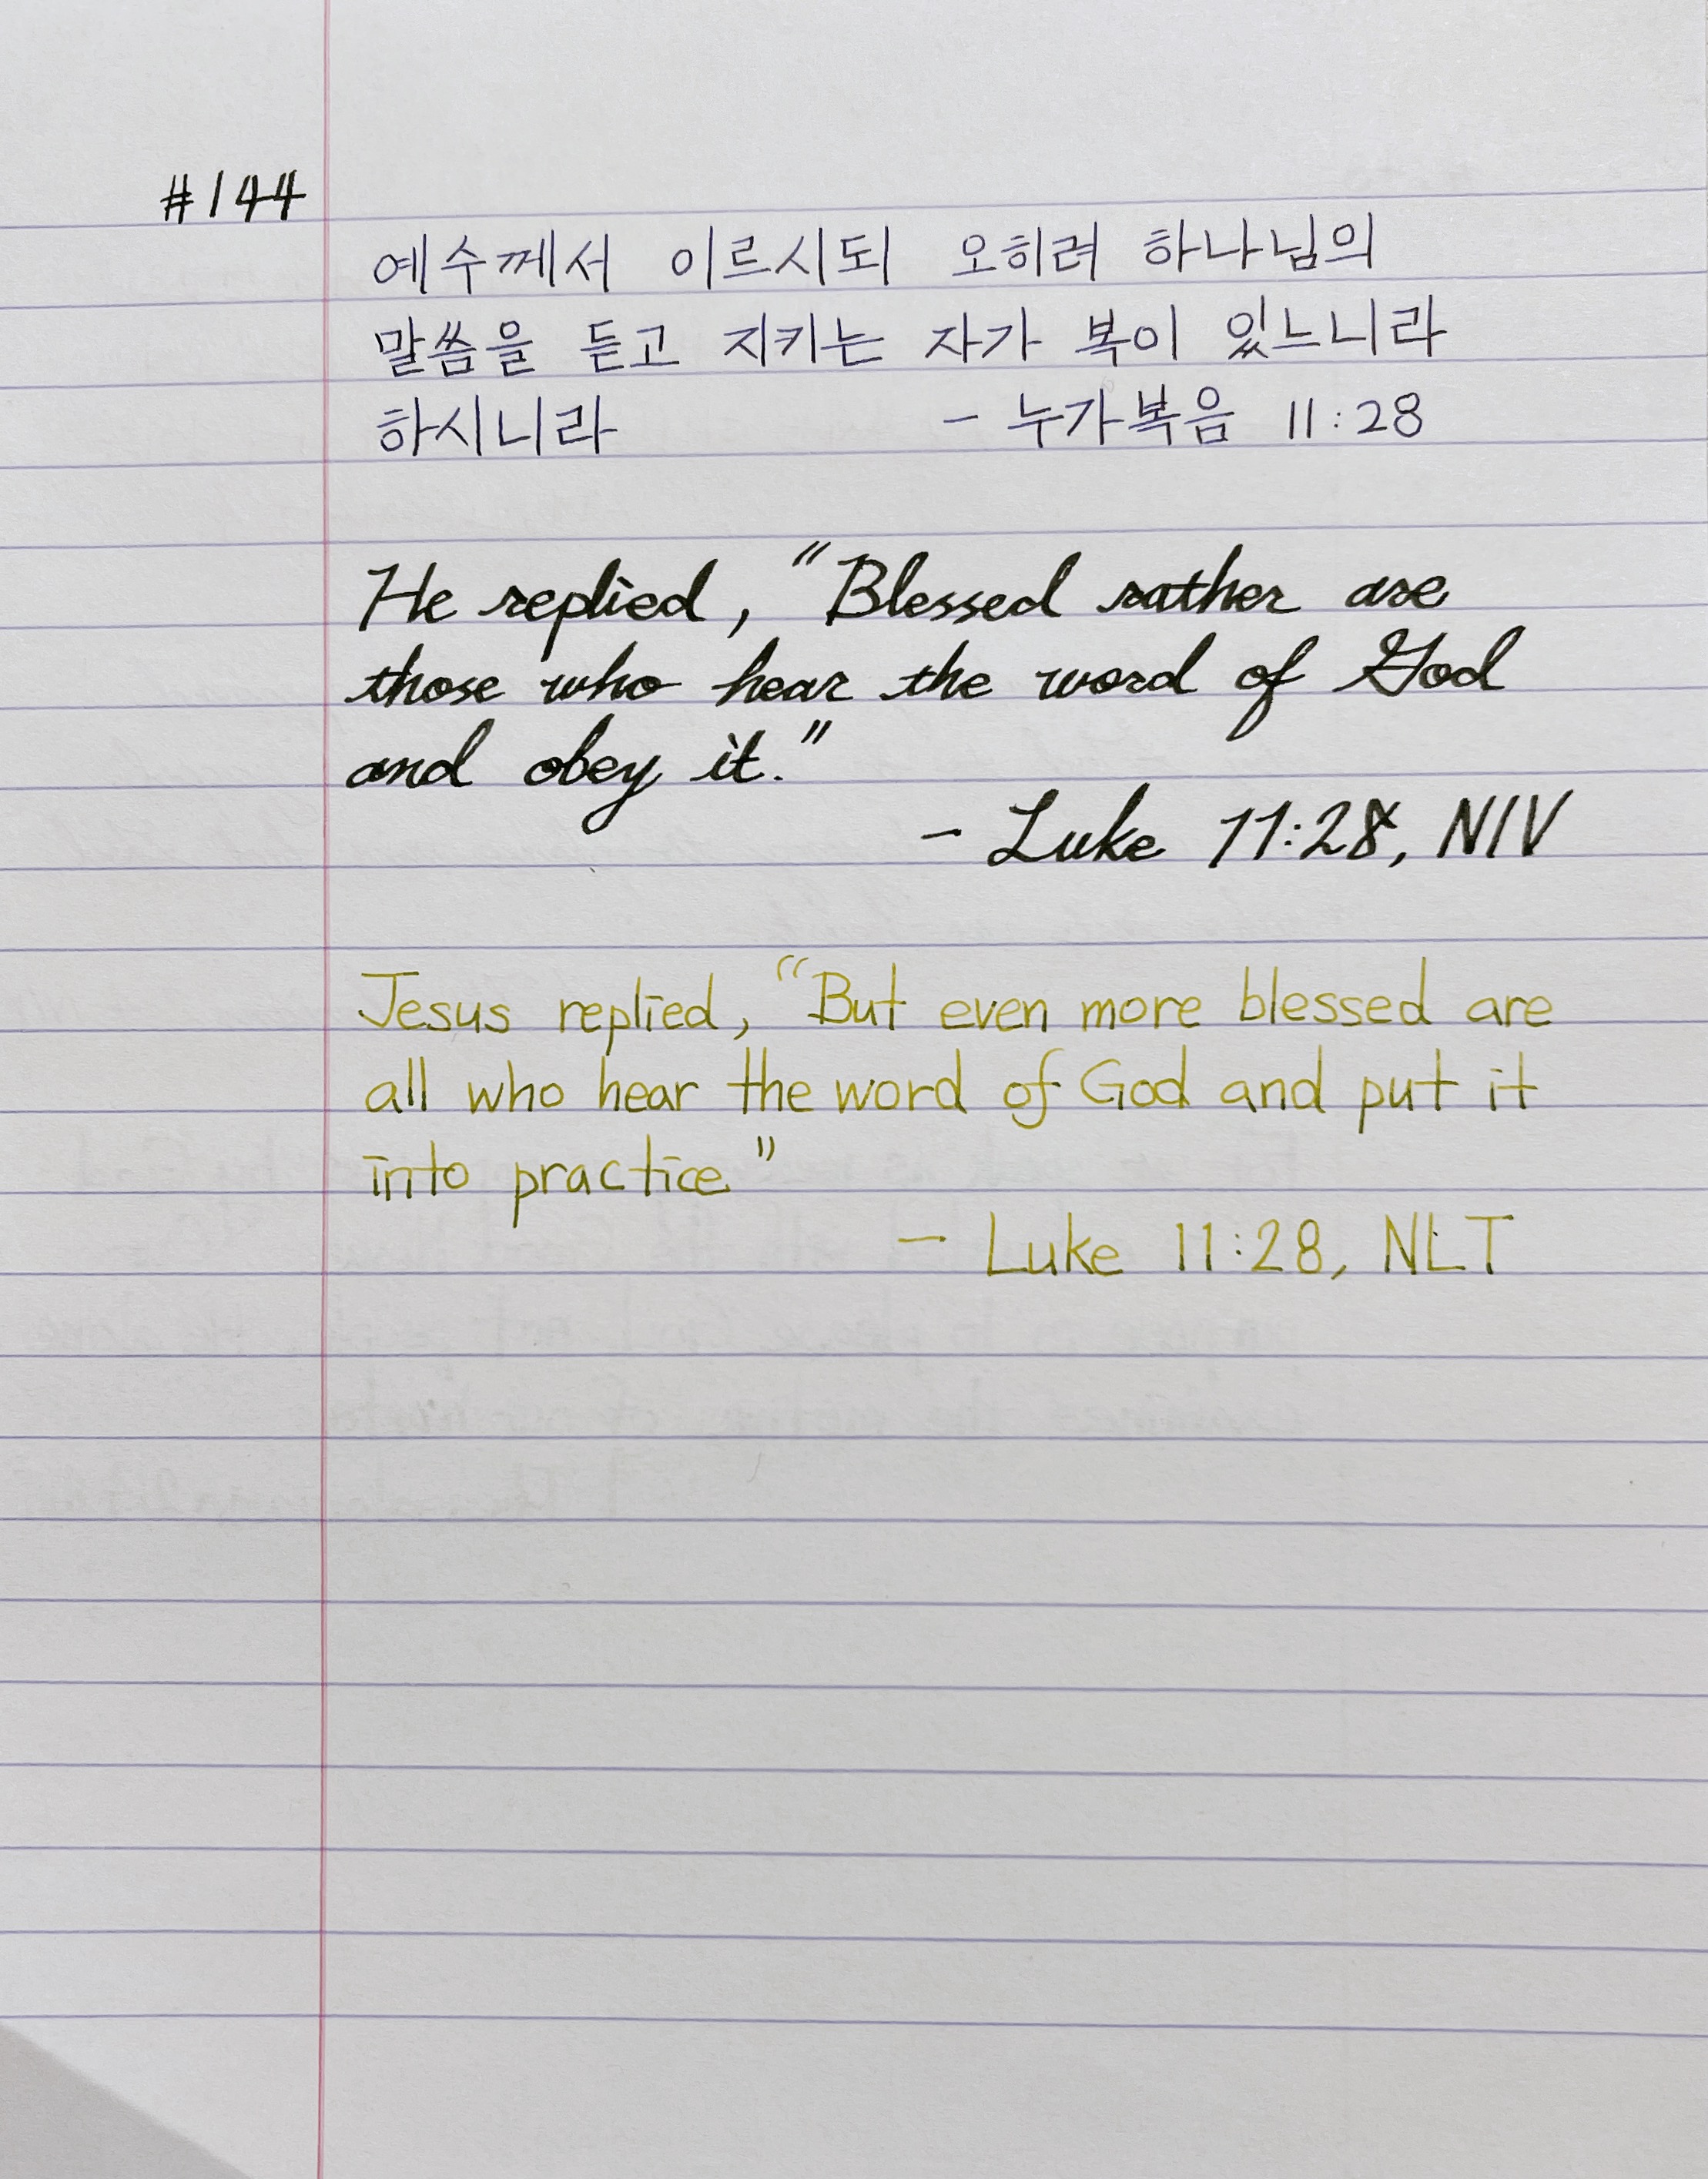 #144
예수께서 이르시되 오히려 하나님의
말씀을 듣고 지키는 자가 복이 있느니라
하시니라 - 누가복음 11:28
He replied, "Blessed rather are
those who hear the word of God
and obey it."
- Luke 11:28, NIV
Jesus replied, "But even more blessed are
all who hear the word of God and put it
into practice"
- Luke 11:28, NLT